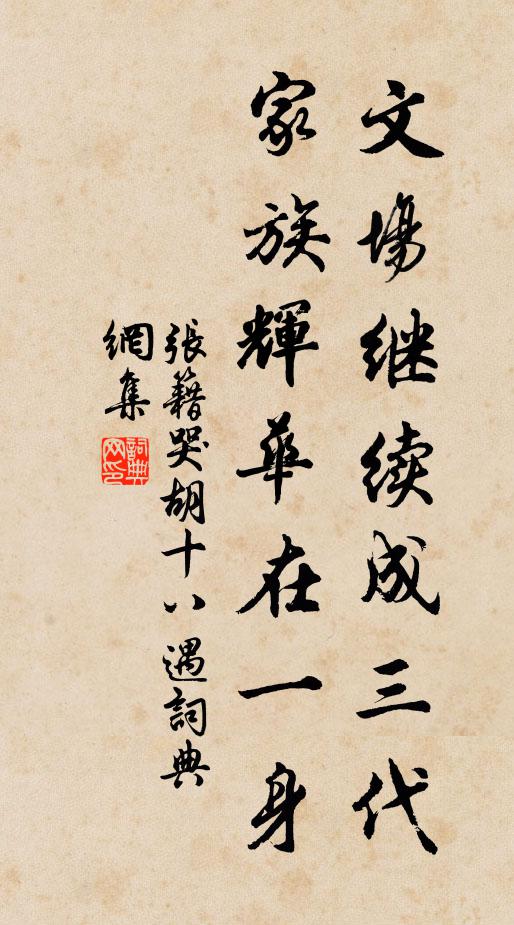 文場继续成三代
家族輝華在一身
張籍哭胡十八遇詞典
網集
詞典网印